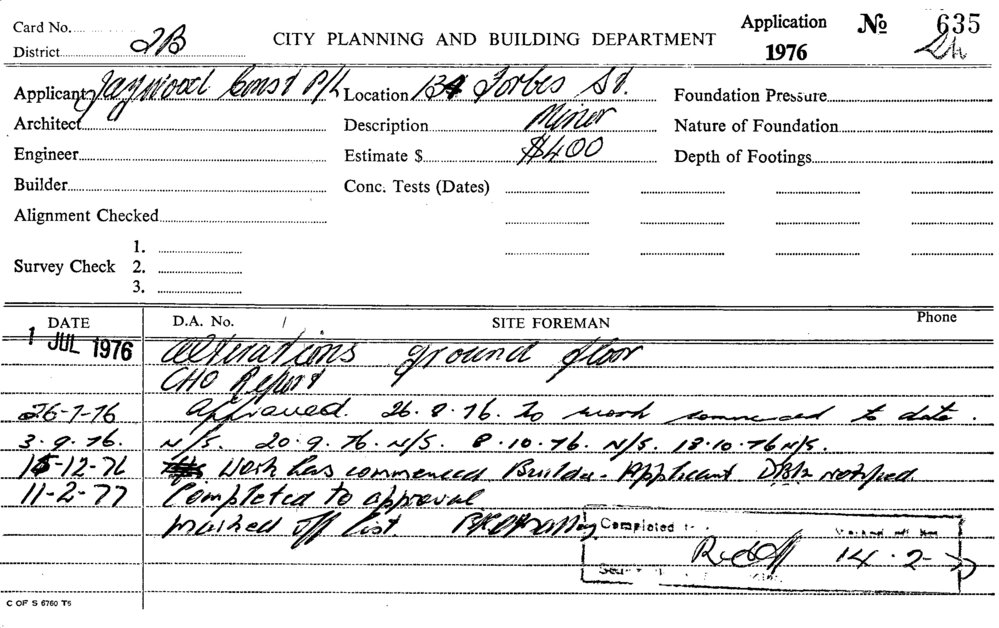 Card No. Application No 635
District 2B CITY PLANNING AND BUILDING DEPARTMENT 1976
Applicant Jaywood Const P/L Location 134 Forbes St. Foundation Pressure
Architect Description Minor Nature of Foundation
Engineer Estimate $ $400 Depth of Footings
Builder Conc. Tests (Dates)
Alignment Checked
1.
Survey Check 2.
3.
DATE D.A. No. / SITE FOREMAN Phone
1 JUL 1976 Alterations ground floor
CHO Report
26-7-76 Approved. 26.8.76. No work commenced to date.
3.9.76. N/S. 20.9.76. N/S. 8.10.76. N/S. 18.10.76 N/S.
15-12-76 Work has commenced Builder - Applicant notified.
11-2-77 Completed to approval
marked off list. Completed
14.2.77
C OF S 6760 T5